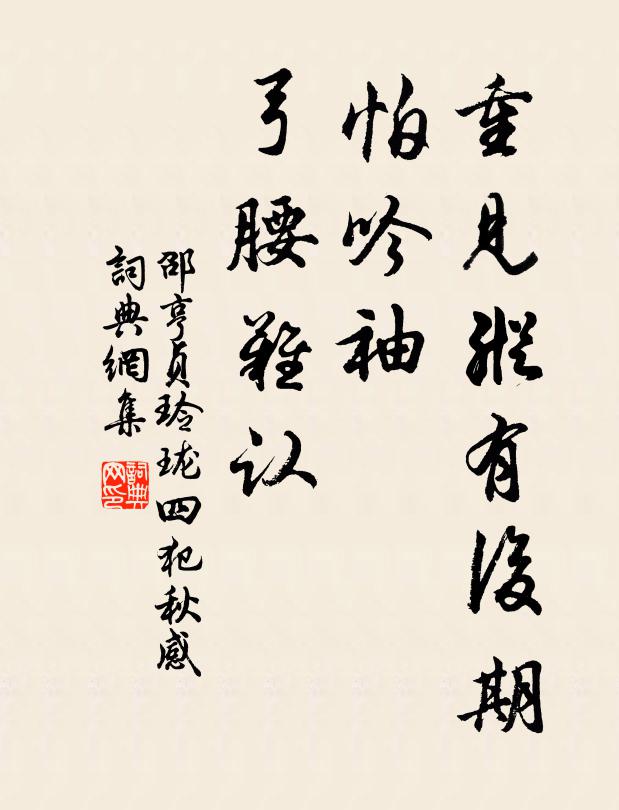 重見縱有後期
怕吟袖
弓腰難认
邵亨貞玲珑四犯秋感
詞典網集
詞典网印